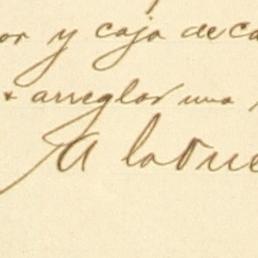 or y caja de ca
arreglar una
A la Due